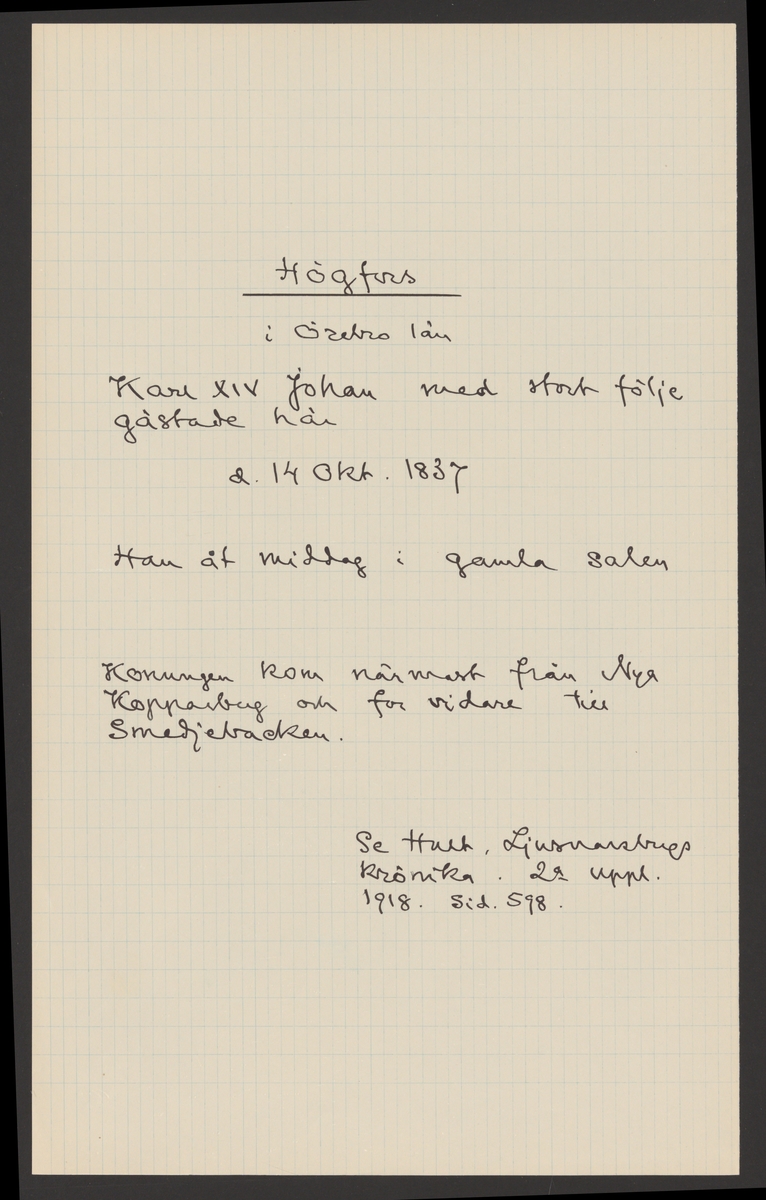 Högfors
i Örebro län
Karl XIV Johan med stort följe
gästade här
d. 14 Okt. 1837
Han åt middag i gamla salen
Konungen kom närmast från Nya
Kopparberg och for vidare till
Smedjebacken.
Se Hult, Ljusnarsbergs
krönika. 2a uppl.
1918. Sid. 598.